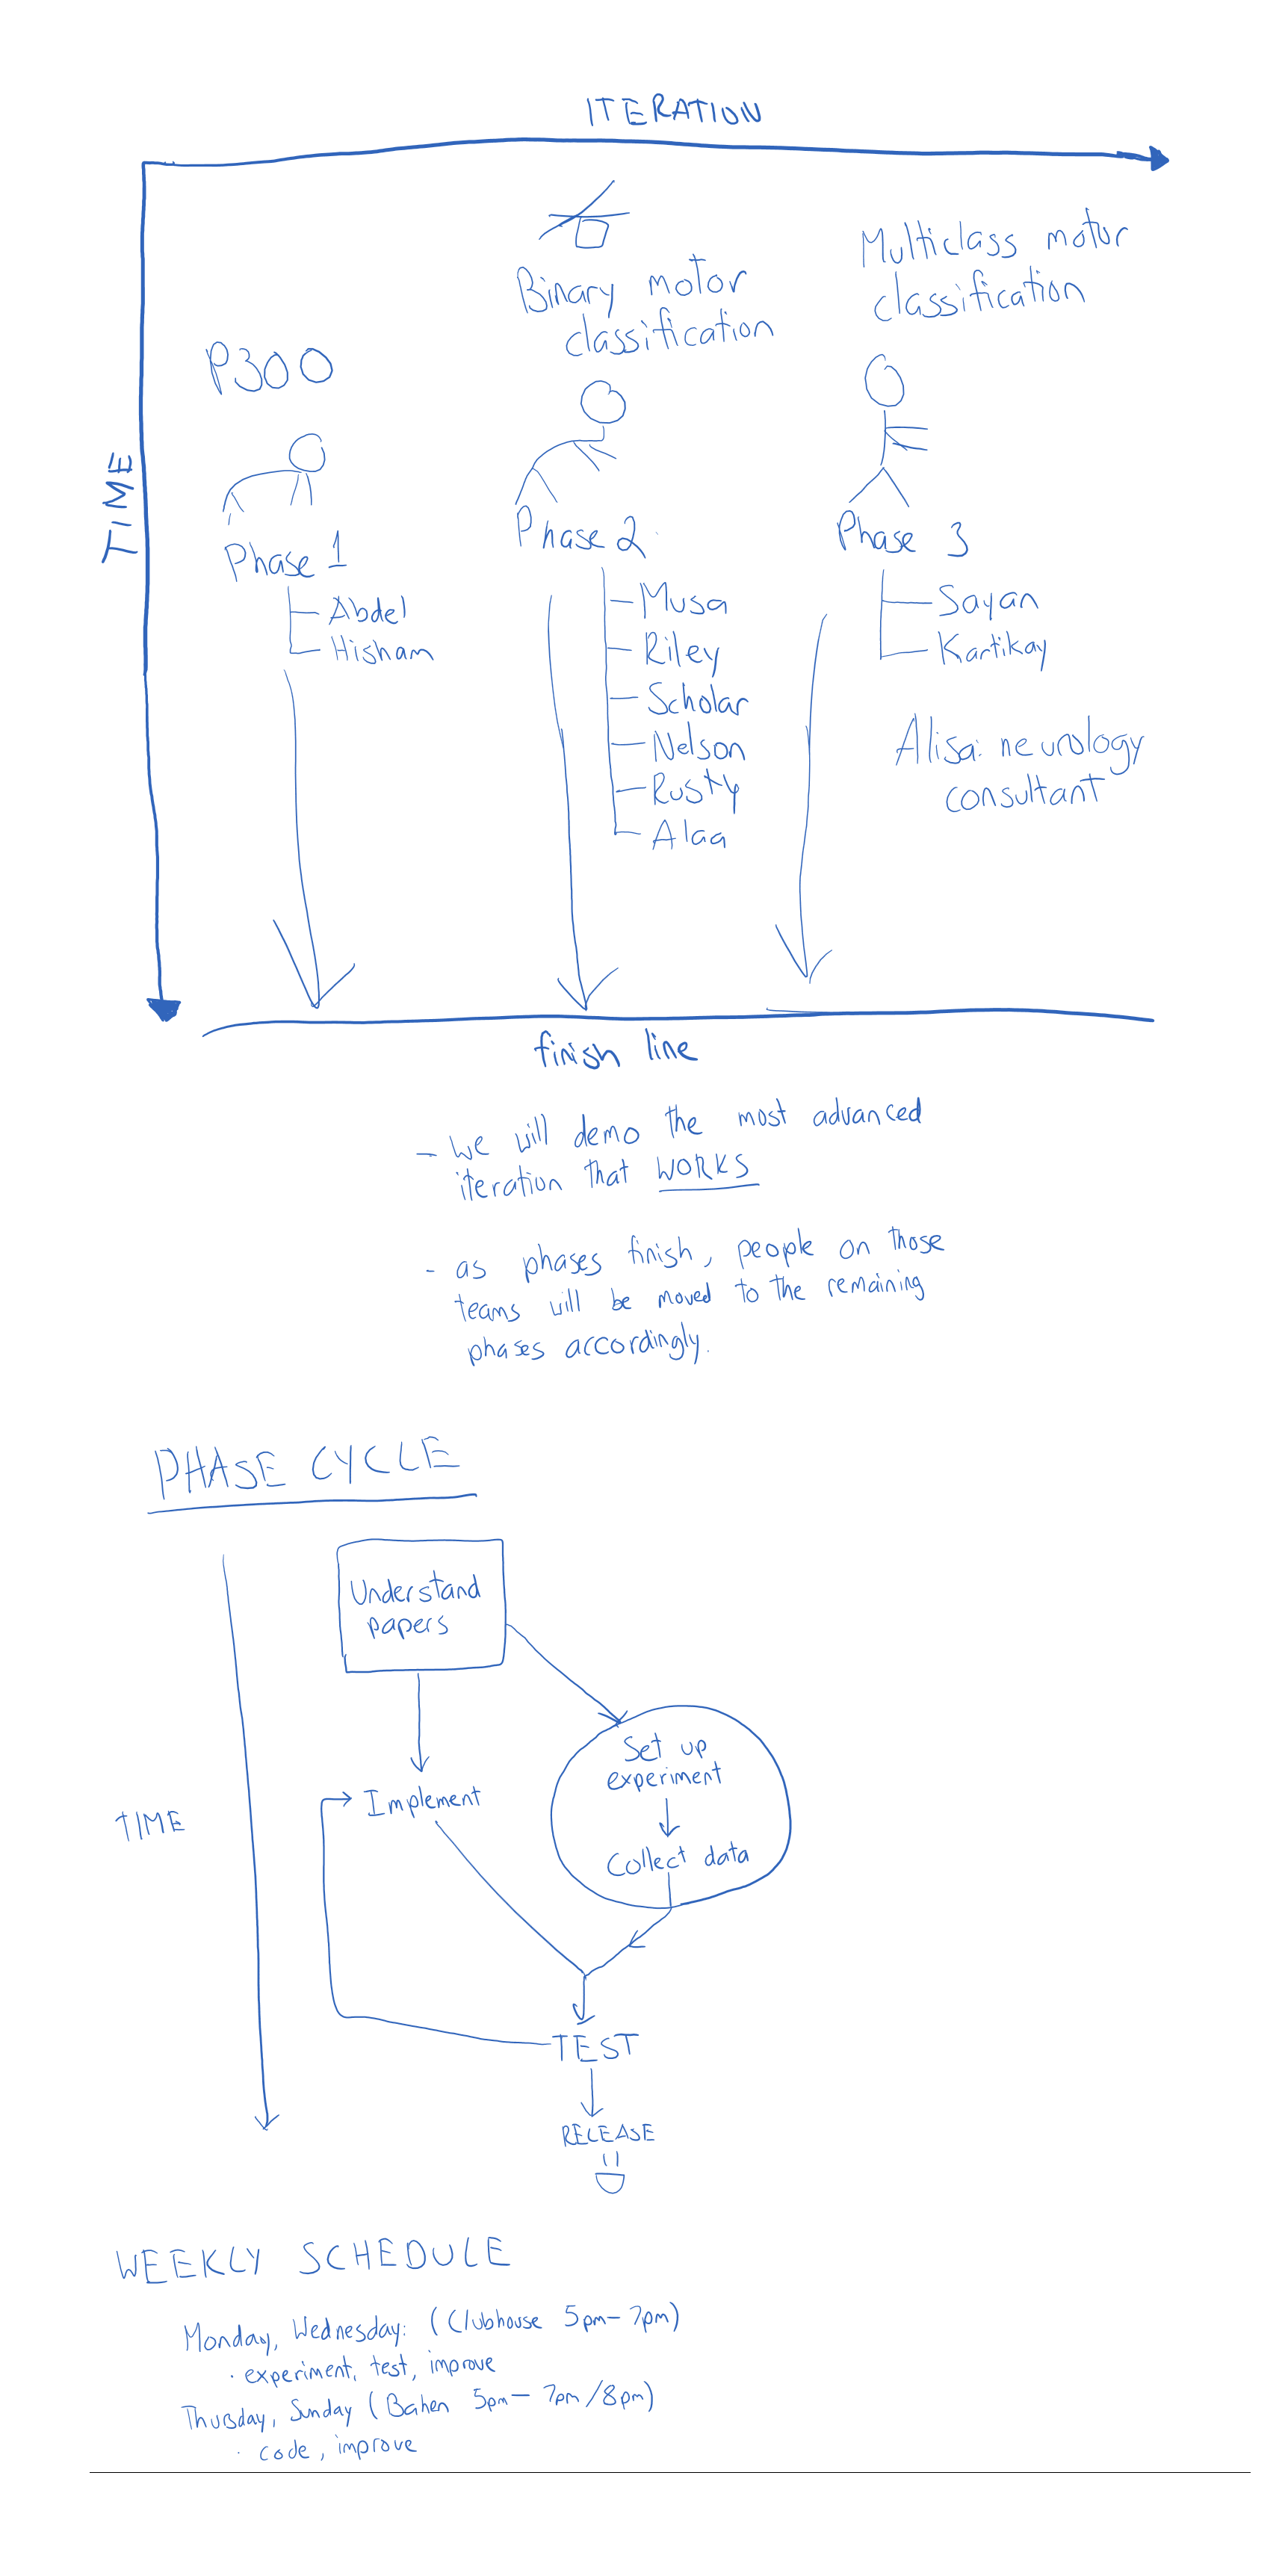 ITERATION
TIME
P300
Phase 1
Abdel
Hisham
Binary motor
classification
Phase 2
Musa
Riley
Scholar
Nelson
Rusty
Alaa
Multiclass motor
classification
Phase 3
Sayan
Kartikay
Alisa: neurology
consultant
finish line
- we will demo the most advanced
iteration that WORKS
- as phases finish, people on those
teams will be moved to the remaining
phases accordingly.
PHASE CYCLE
TIME
Understand
papers
Implement
Set up
experiment
Collect data
TEST
RELEASE
WEEKLY SCHEDULE
Monday, Wednesday: (Clubhouse 5pm - 7pm)
· experiment, test, improve
Thursday, Sunday (Bahen 5pm - 7pm/8pm)
· code, improve